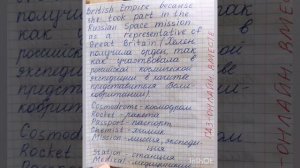 British Empire because
she took part in the
Russian space mission
as a representative of
Great Britain (Хелен
получила орден так
как участвовала в
российской космической
экспедиции в качестве
представителя Вели-
кобритании).
Cosmodrome - космодром
Rocket - ракета
Passport - паспорт
Chemist - химик
Mission - миссия, экспеди-
ция
Station - станция
Medical - медицинский
ГДЗ ОНЛАЙН ВМЕСТЕ